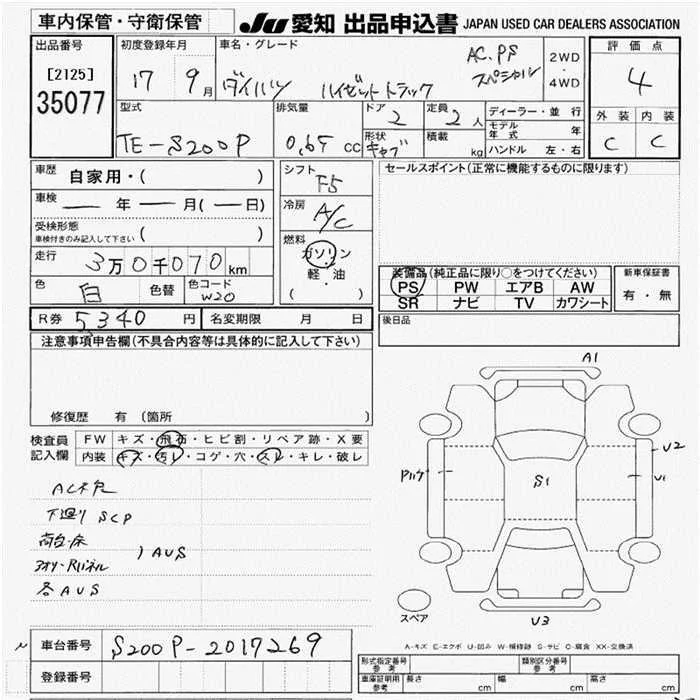 車内保管・守衛保管
JU 愛知 出品申込書 JAPAN USED CAR DEALERS ASSOCIATION
出品番号
[2125]
35077
初度登録年月
17 9月
車名・グレード
ダイハツ ハイゼットトラック
AC.PS
スペシャル
2WD
・
4WD
評価点
4
外装 内装
C C
型式
TE-S200P
排気量
0.65 CC
ドア
2
定員
2人
形状
キャブ
積載
kg
ディーラー・並行
モデル年式 年
ハンドル 左・右
車歴
自家用・( )
車検
— 年 — 月(— 日)
受検形態
車検付きのみ記入して下さい ( )
走行
3万0千070km
色
白
色替
色コード
W20
シフト
F5
冷房
A/C
燃料
ガソリン
軽・油
( )
セールスポイント(正常に機能するものに限ります)
装備品(純正品に限り○をつけてください)
PS PW エアB AW
SR ナビ TV カワシート
新車保証書
有・無
R券 5,340 円
名変期限 月 日
後日品
注意事項申告欄(不具合内容等は具体的に記入して下さい)
修復歴 有 (箇所 )
検査員
記入欄
FW キズ・飛石・ヒビ割・リペア跡・X要
内装 キズ・汚レ・コゲ・穴・スレ・キレ・破レ
下廻り SCP
荷台・床
アオリ・Rパネル
) AUS
各AUS
A1
U2
U1
S1
U3
スペア
A-キズ E-エクボ U-凹み W-補修跡 S-サビ C-腐食 XX-交換済
車台番号
S200P-2017269
登録番号
形式指定番号
参考
類別区分番号
参考
車庫証明用
参考
長さ cm 幅 cm 高さ cm